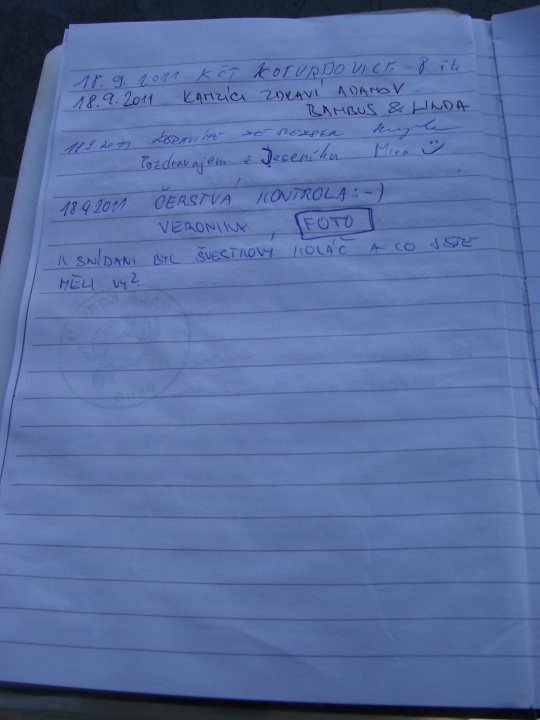 18.9.2011 KČT KOTVRDOVICE 8
18.9.2011 KAMZÍCI ZDRAVÍ ADAMOV
BAMBUS & LINDA
18.9.2011 ZDRAVÍME ZE
Pozdravujem z Jeseníku Mira
18.9.2011 ČERSTVÁ KONTROLA :-)
VERONIKA, FOTO
K SNÍDANI BYL ŠVESTKOVÝ KOLÁČ A CO JSTE
MĚLI VY?